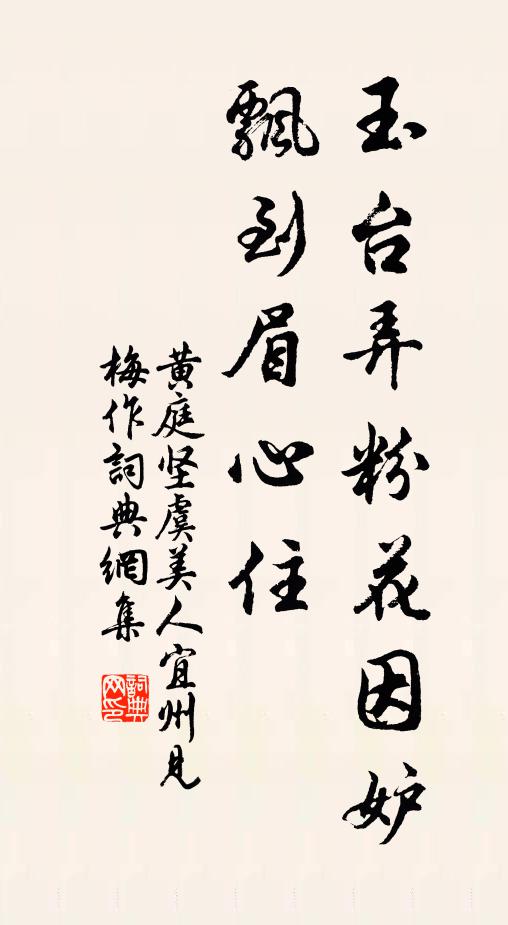 玉台弄粉花因妒
飄到眉心住
黄庭坚虞美人宜州見
梅作詞典網集
詞典
网印